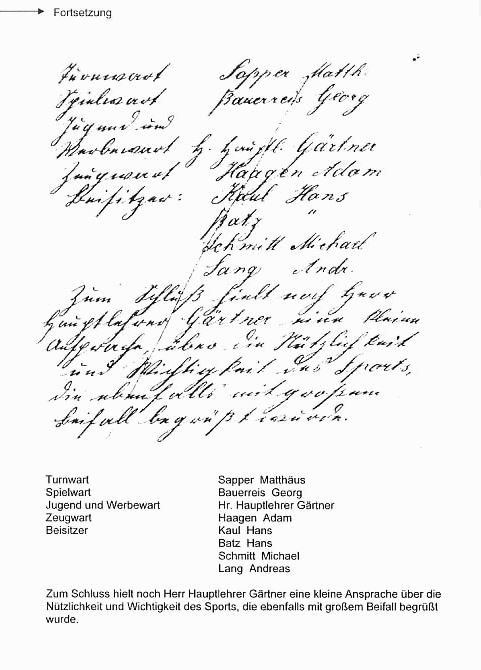 Fortsetzung
Turnwart Sapper Matth.
Spielwart Bauerreis Georg
Jugend und
Werbewart H. Hauptl. Gärtner
Zeugwart Haagen Adam
Beisitzer: Kaul Hans
Batz "
Schmitt Michael
Lang Andr.
Zum Schluß hielt noch Herr
Hauptlehrer Gärtner eine kleine
Ansprache über die Nützlichkeit
und Wichtigkeit des Sports,
die ebenfalls mit großem
Beifall begrüßt wurde.
Turnwart Sapper Matthäus
Spielwart Bauerreis Georg
Jugend und Werbewart Hr. Hauptlehrer Gärtner
Zeugwart Haagen Adam
Beisitzer Kaul Hans
Batz Hans
Schmitt Michael
Lang Andreas
Zum Schluss hielt noch Herr Hauptlehrer Gärtner eine kleine Ansprache über die
Nützlichkeit und Wichtigkeit des Sports, die ebenfalls mit großem Beifall begrüßt
wurde.